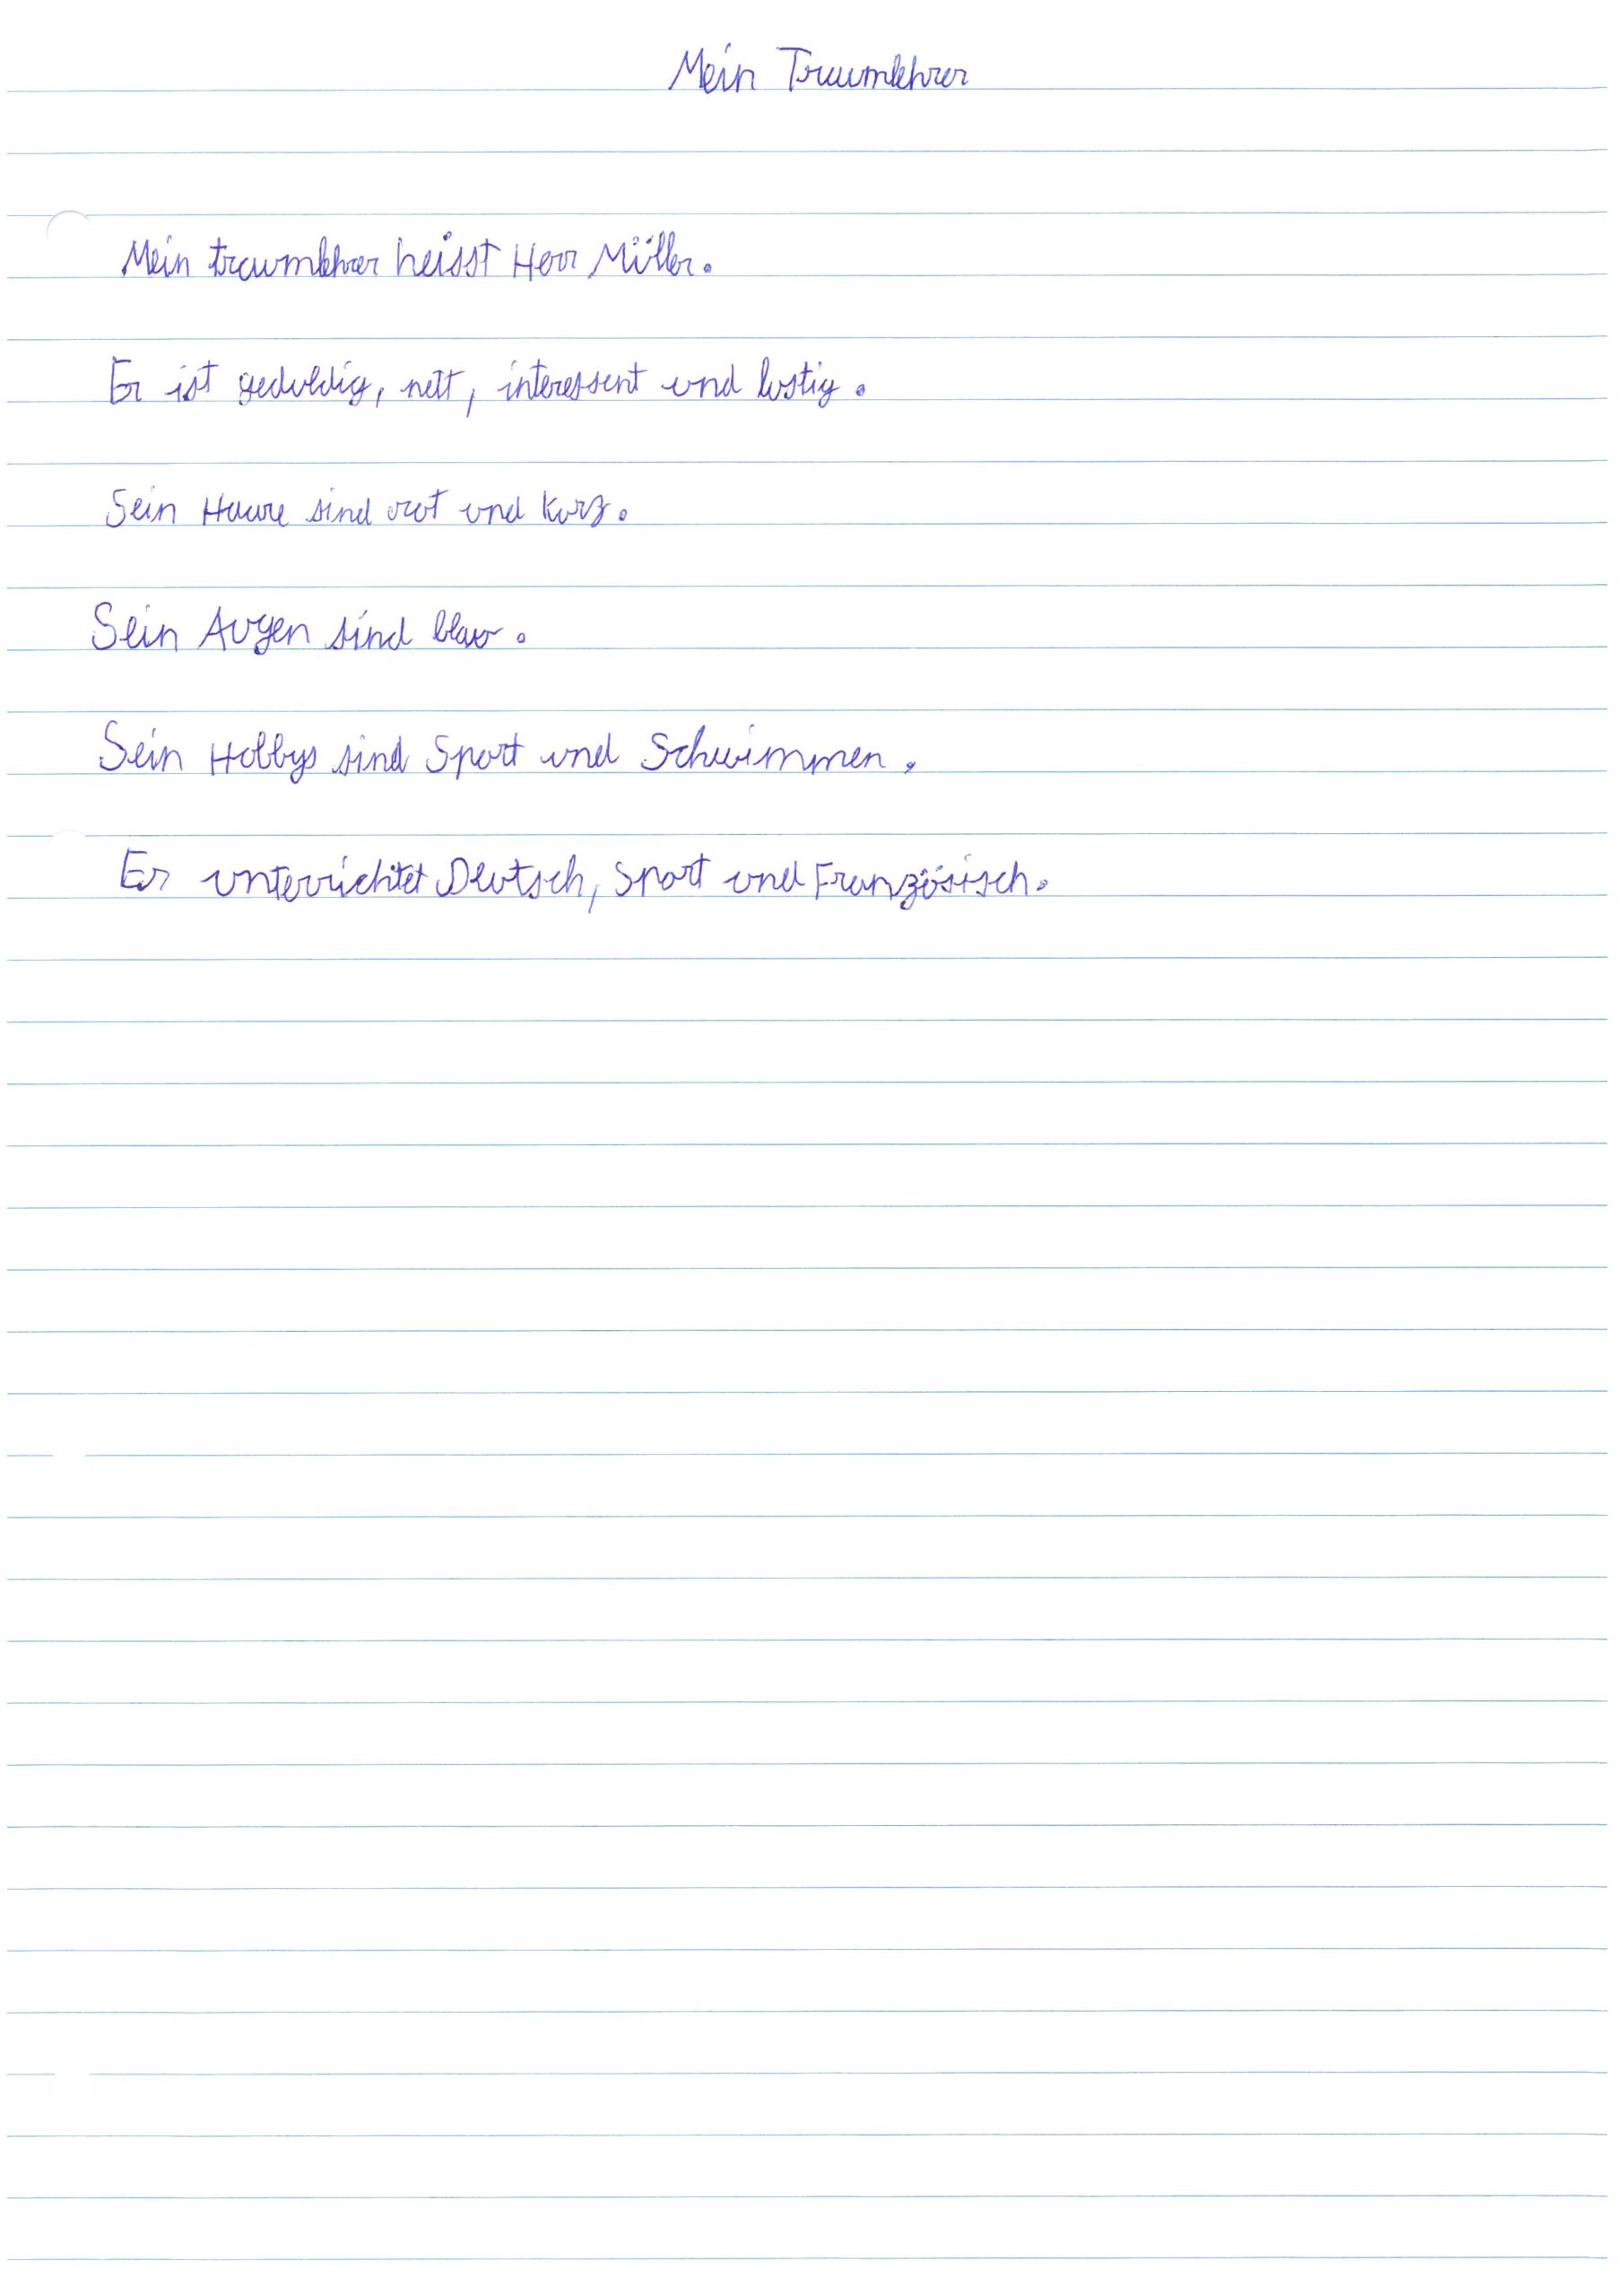 Mein Traumlehrer
Mein traumlehrer heisst Herr Müller.
Er ist geduldig, nett, interessant und lustig.
Sein Haare sind rot und kurz.
Sein Augen sind blau.
Sein Hobbys sind Sport und Schwimmen.
Er unterrichtet Deutsch, Sport und Französisch.